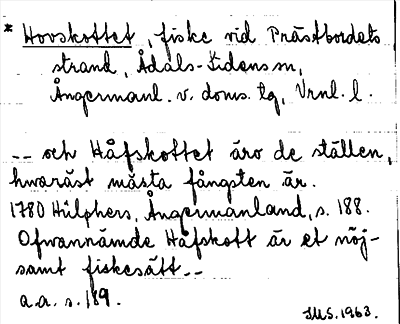 * Hovskottet, fiske vid Prästbordets
strand, Ådals-Lidens sn,
Ångermanl. v. doms. tg, Vrnl. l.
-- och Håfskottet äro de ställen,
hwaräst mästa fångsten är.
1780 Hülphers, Ångermanland, s. 188.
Ofwannämde Håfskott är et nöj-
samt fiskesätt --
a.a. s. 189.
JMS. 1963.